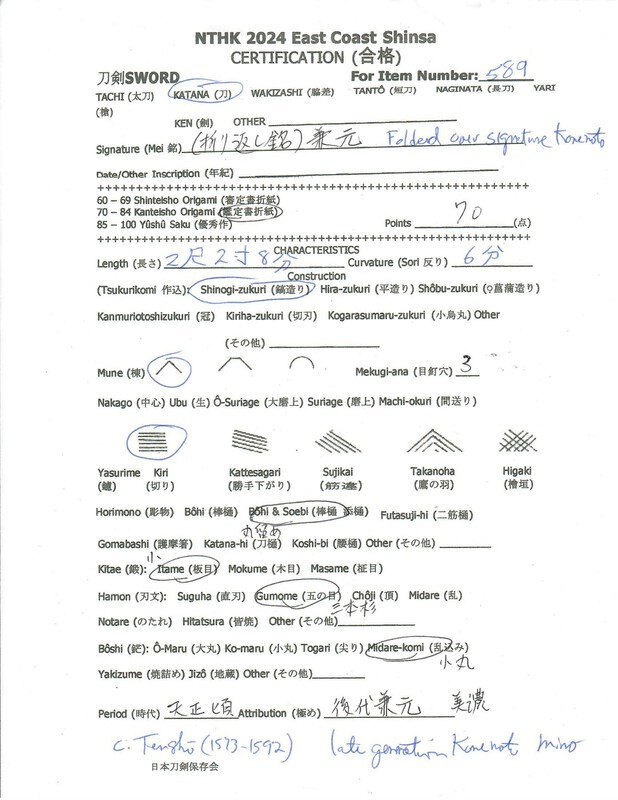 NTHK 2024 East Coast Shinsa
CERTIFICATION (合格)
刀剣SWORD For Item Number: 589
TACHI (太刀) KATANA (刀) WAKIZASHI (脇差) TANTÔ (短刀) NAGINATA (長刀) YARI
(槍)
KEN (劍) OTHER
Signature (Mei 銘) (折り返し銘) 兼元 Folded over signature Kanemoto
Date/Other Inscription (年紀)
++++++++++++++++++++++++++++++++++++++++++++++++++++++++
60 – 69 Shinteisho Origami (審定書折紙)
70 – 84 Kanteisho Origami (鑑定書折紙)
85 – 100 Yûshû Saku (優秀作) Points 70 (点)
++++++++++++++++++++++++++++++++++++++++++++++++++++++++
CHARACTERISTICS
Length (長さ) 2尺2寸8分 Curvature (Sori 反り) 6分
Construction
(Tsukurikomi 作込): Shinogi-zukuri (鎬造り) Hira-zukuri (平造り) Shôbu-zukuri (♀菖蒲造り)
Kanmuriotoshizukuri (冠) Kiriha-zukuri (切刃) Kogarasumaru-zukuri (小烏丸) Other
(その他)
Mune (棟) Mekugi-ana (目釘穴) 3
Nakago (中心) Ubu (生) Ô-Suriage (大磨上) Suriage (磨上) Machi-okuri (間送り)
Yasurime Kiri Kattesagari Sujikai Takanoha Higaki
(鑢) (切り) (勝手下がり) (筋違) (鷹の羽) (檜垣)
Horimono (彫物) Bôhi (棒樋) Bôhi & Soebi (棒樋 添樋) Futasuji-hi (二筋樋)
丸留め
Gomabashi (護摩箸) Katana-hi (刀樋) Koshi-bi (腰樋) Other (その他)
小
Kitae (鍛): Itame (板目) Mokume (木目) Masame (柾目)
Hamon (刃文): Suguha (直刃) Gumome (五の目) Chôji (頂) Midare (乱)
三本杉
Notare (のたれ) Hitatsura (皆焼) Other (その他)
Bôshi (鋩): Ô-Maru (大丸) Ko-maru (小丸) Togari (尖り) Midare-komi (乱込み)
小丸
Yakizume (焼詰め) Jizô (地蔵) Other (その他)
Period (時代) 天正頃 Attribution (極め) 後代兼元 美濃
c. Tenshō (1573-1592) late generation Kanemoto Mino
日本刀剣保存会